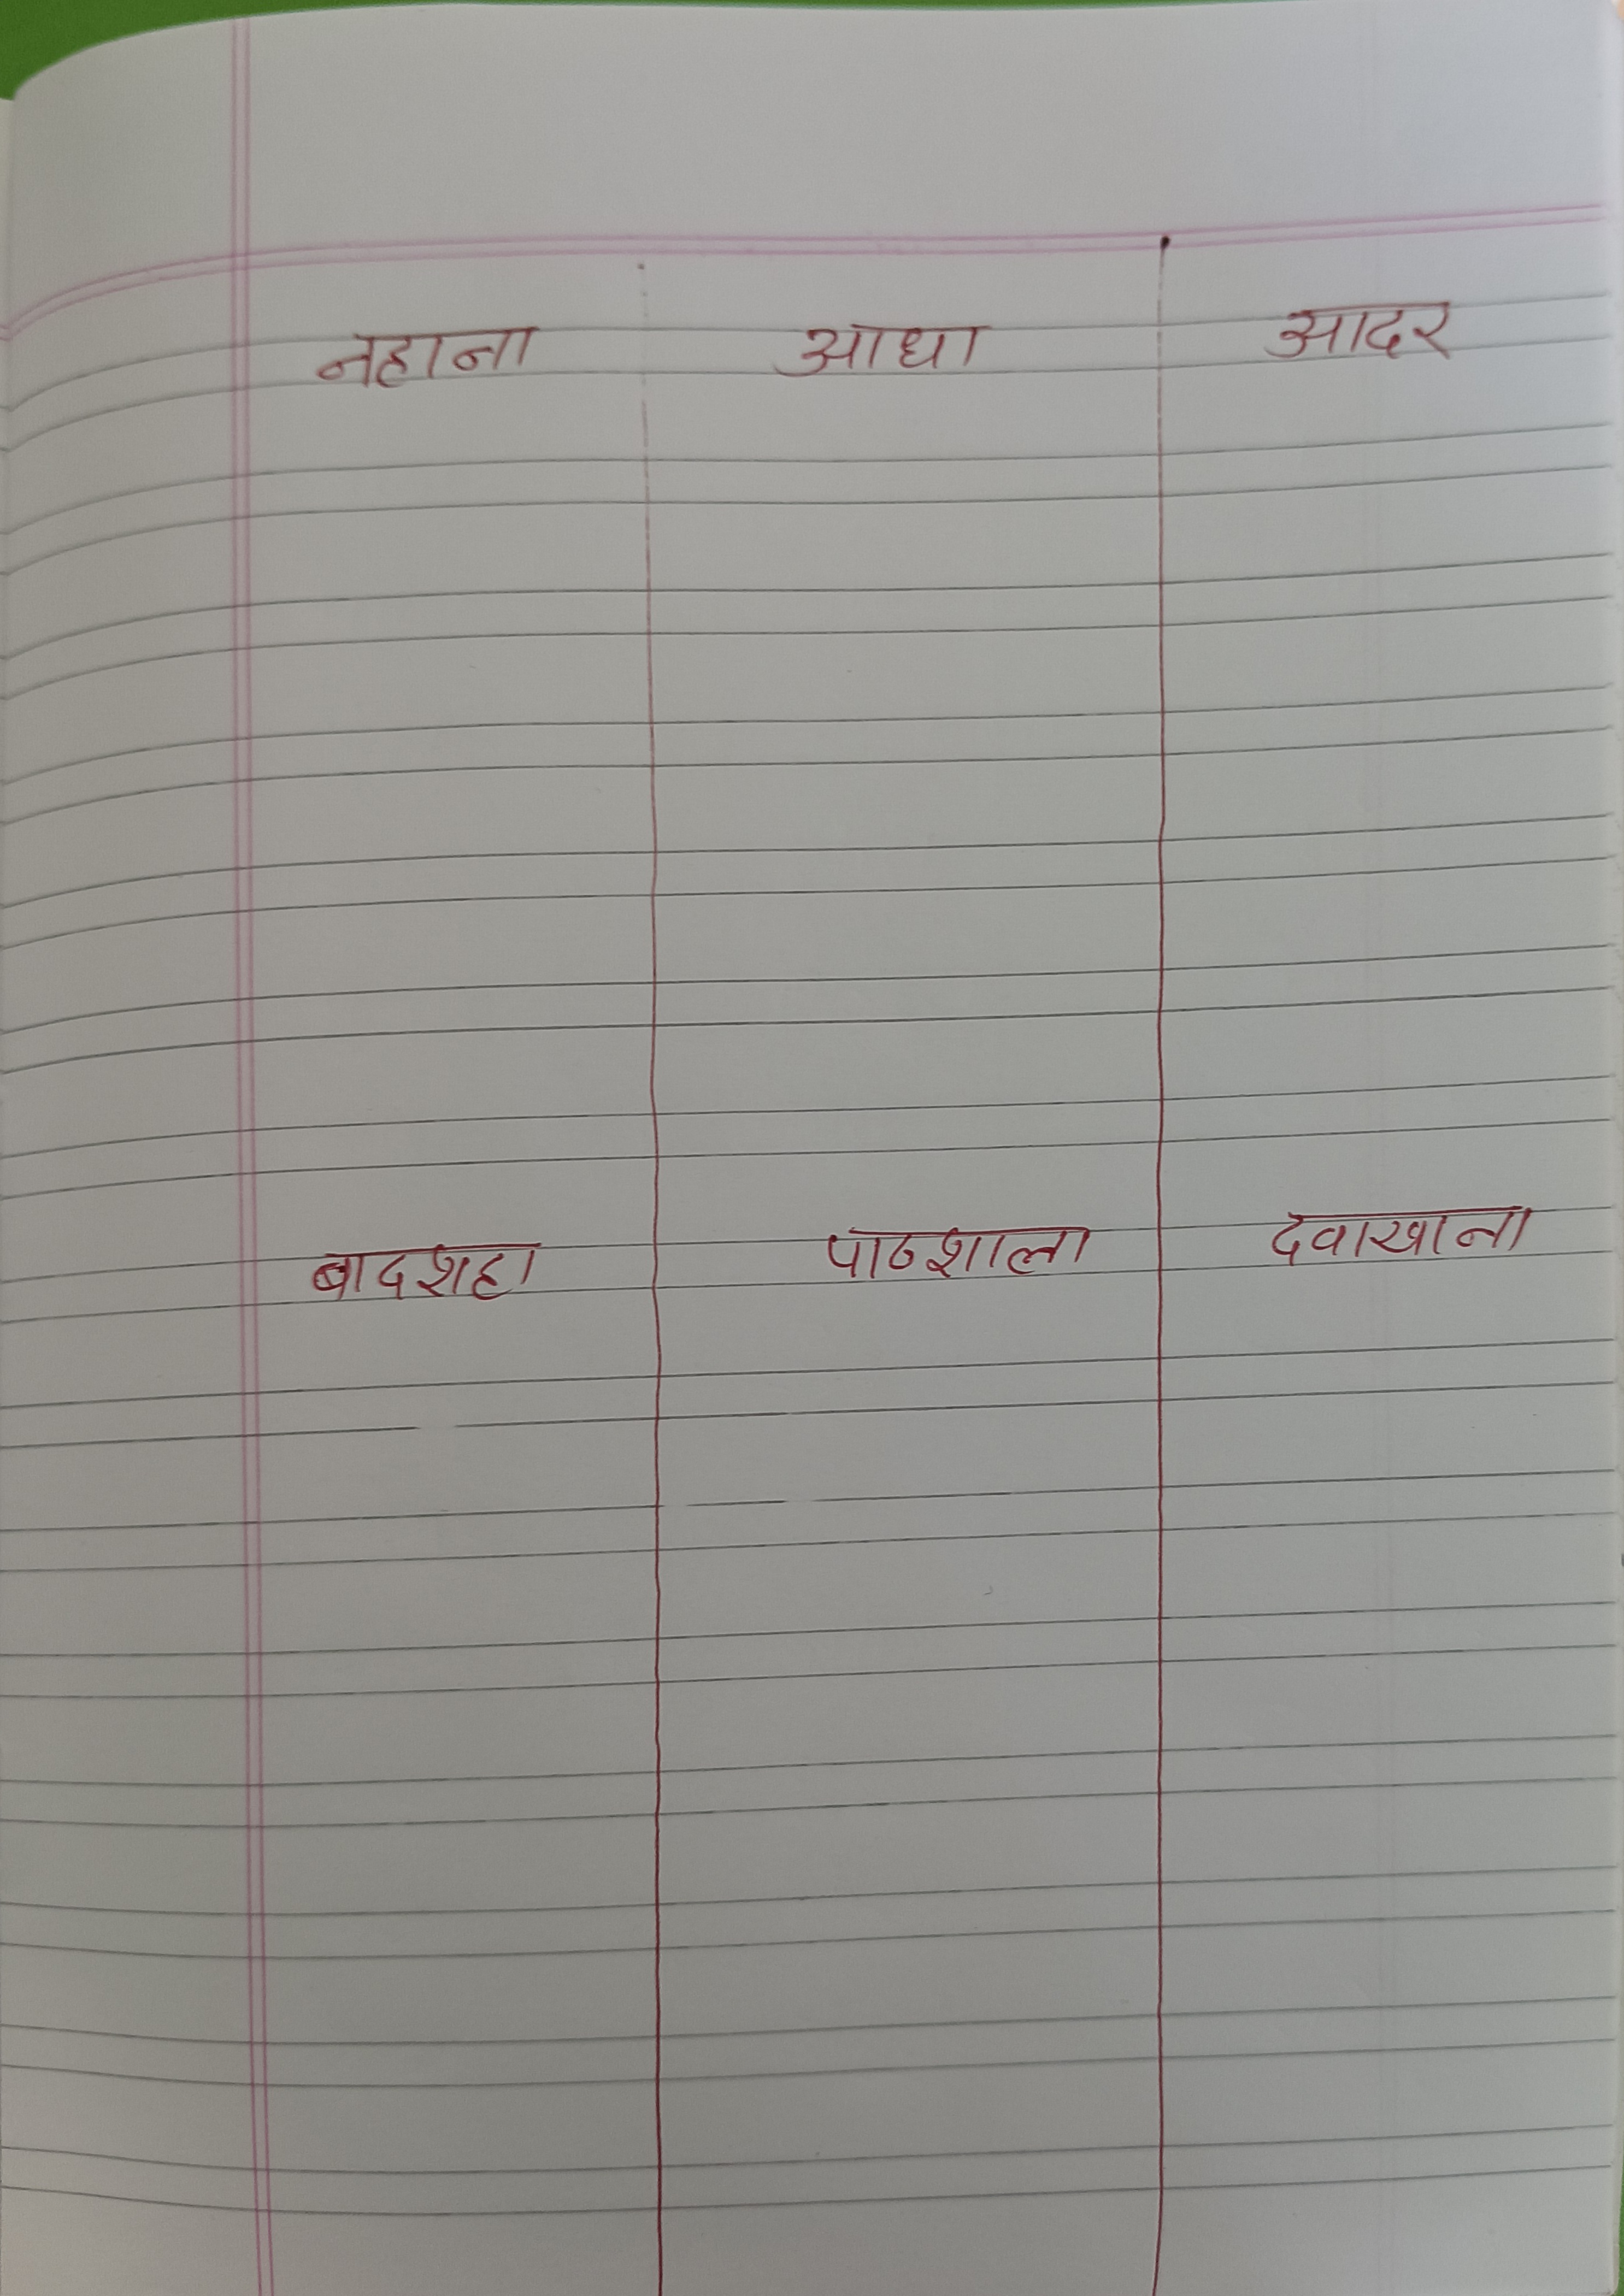 नहाना आधा आदर
बादशहा पाठशाला दवाखाना